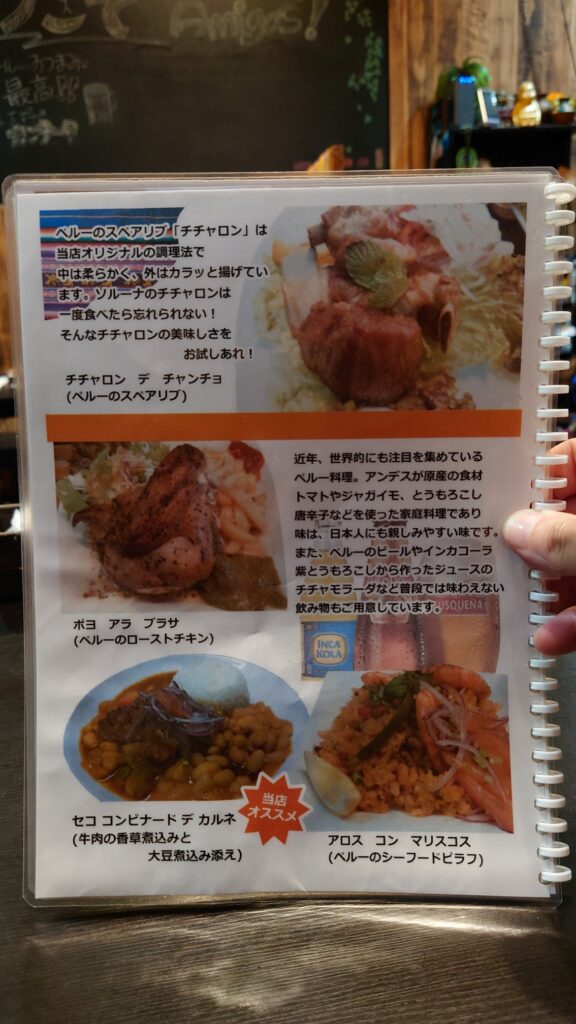 Amigos!
最高
ペルーのスペアリブ「チチャロン」は
当店オリジナルの調理法で
中は柔らかく、外はカラッと揚げてい
ます。ソルーナのチチャロンは
一度食べたら忘れられない！
そんなチチャロンの美味しさを
お試しあれ！
チチャロン デ チャンチョ
(ペルーのスペアリブ)
近年、世界的にも注目を集めている
ペルー料理。アンデスが原産の食材
トマトやジャガイモ、とうもろこし
唐辛子などを使った家庭料理であり
味は、日本人にも親しみやすい味です。
また、ペルーのビールやインカコーラ
紫とうもろこしから作ったジュースの
チチャモラーダなど普段では味わえない
飲み物もご用意しています。
INCA
KOLA
USQUEÑA
ポヨ アラ ブラサ
(ペルーのローストチキン)
当店
オススメ
セコ コンビナード デ カルネ
(牛肉の香草煮込みと
大豆煮込み添え)
アロス コン マリスコス
(ペルーのシーフードピラフ)